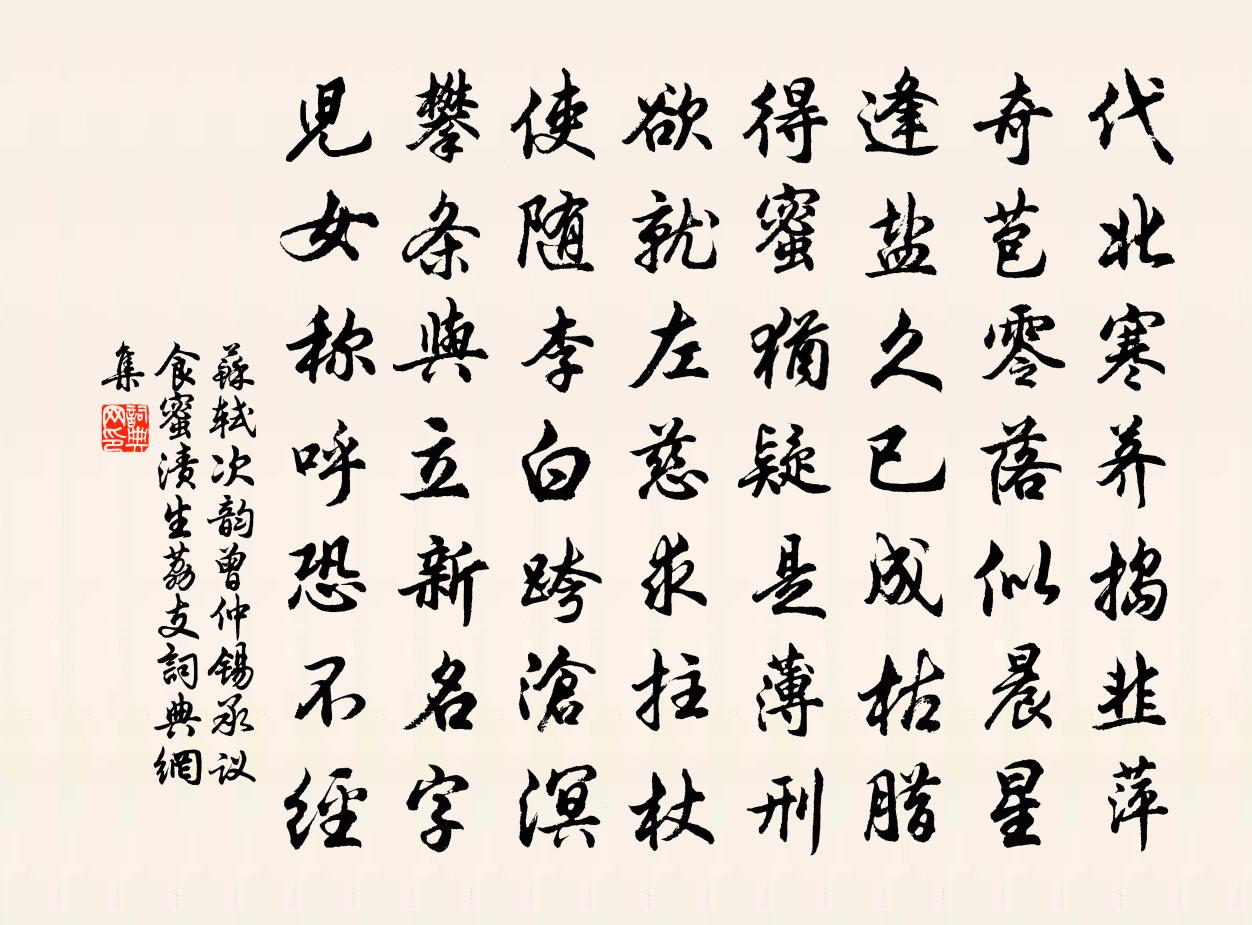 代北寒荠捣韭萍
奇苞零落似晨星
逢盐久已成枯腊
得蜜犹疑是薄刑
欲就左慈求拄杖
便随李白跨沧溟
攀条与立新名字
儿女称呼恐不经
蘇轼次韵曾仲锡承议
食蜜渍生荔支詞典網
集
詞典网印